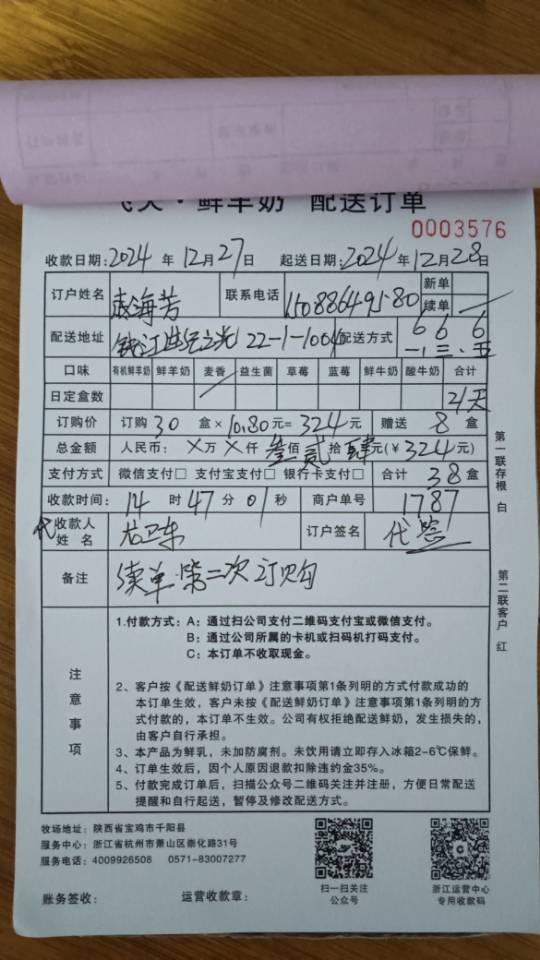 ·鲜羊奶 配送订单
0003576
收款日期:2024年12月27日 起送日期:2024年12月28日
订户姓名 海芳 联系电话 15088649580 新单 续单
配送地址 钱江世纪之光 22-1-1004 配送方式 6 6 6 一、三、五
口味 有机鲜羊奶 鲜羊奶 麦香 益生菌 草莓 蓝莓 鲜牛奶 酸牛奶 合计
日定盒数 2/天
订购价 订购30盒×10.80元=324元 赠送 8盒
总金额 人民币:×万×仟叁佰贰拾肆元(¥324元)
支付方式 微信支付□ 支付宝支付□ 银行卡支付□ 合计 38盒
收款时间: 14时47分01秒 商户单号 1787
代收款人姓名 龙卫东 订户签名 代签
备注 续单·第二次订购
注意事项
1.付款方式:A:通过扫公司支付二维码支付宝或微信支付。
B:通过公司所属的卡机或扫码机打码支付。
C:本订单不收取现金。
2、客户按《配送鲜奶订单》注意事项第1条列明的方式付款成功的
本订单生效,客户未按《配送鲜奶订单》注意事项第1条列明的方
式付款的,本订单不生效。公司有权拒绝配送鲜奶,发生损失的,
由客户自行承担。
3、本产品为鲜乳,未加防腐剂。未饮用请立即存入冰箱2-6℃保鲜。
4、订单生效后,因个人原因退款扣除违约金35%。
5、付款完成订单后,扫描公众号二维码关注并注册,方便日常配送
提醒和自行起送,暂停及修改配送方式。
第一联存根 白
第二联客户 红
牧场地址:陕西省宝鸡市千阳县
服务中心:浙江省杭州市萧山区崇化路31号
服务电话:4009926508 0571-83007277
扫一扫关注
公众号
浙江运营中心
专用收款码
账务签收: 运营收款章: